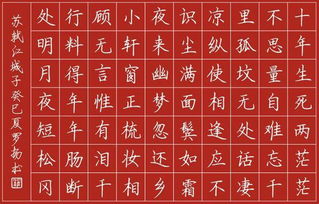 十年生死两茫茫
不思量自难忘千
里孤坟无处话凄
凉纵使相逢应不
识尘满面鬓如霜
夜来幽梦忽还乡
小轩窗正梳妆相
顾无言惟有泪千
行料得年年肠断
处明月夜短松冈
苏轼江城子癸巳夏罗